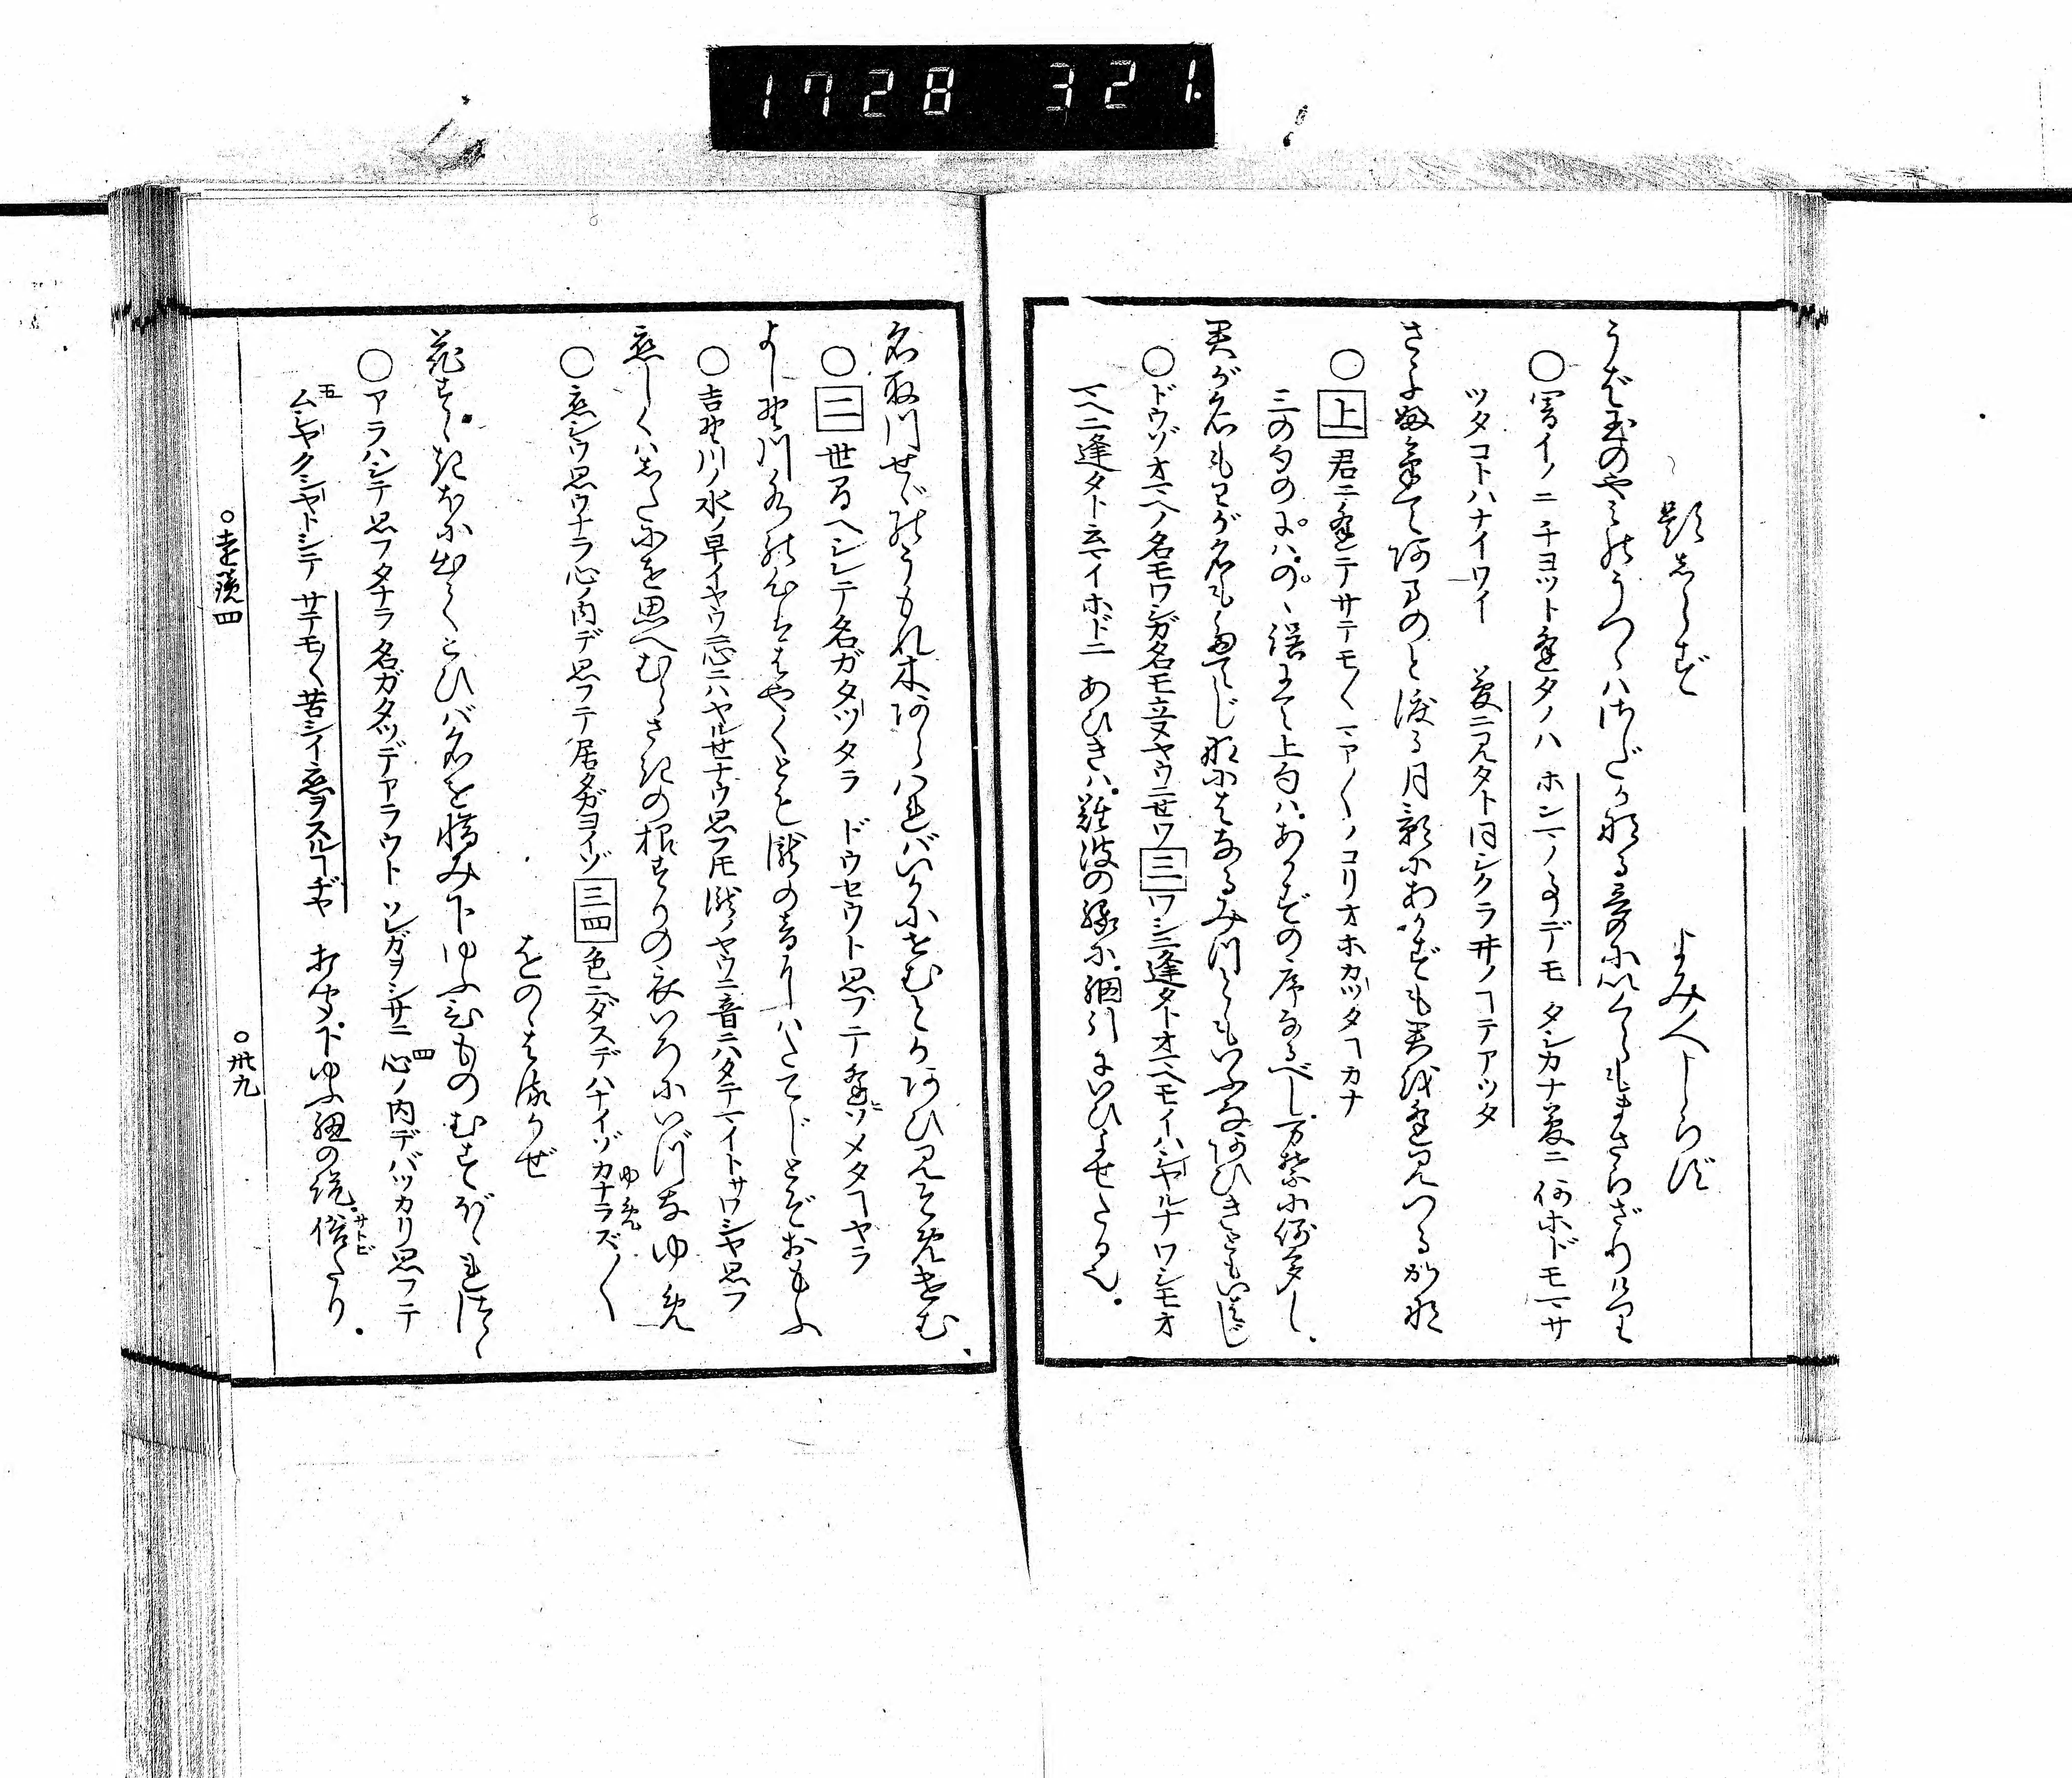 1728 321.
題しらず　よみ人しらず
うば玉のやみのうつゝはさだかなる夢にいくらもまさらざりけり
○闇イノニ チヨツト逢タノハ ホンマノ事デモ タシカナ夢ニ 何ホドモマサ
ツタコトハナイワイ 夢ニ見タト同シクラ井ノヿテアツタ
さよ更てあまのと渡る月影にあかずも君を逢見つるかな
○上 君ニ逢テサテモ〳〵マア〳〵ノコリオホカツタヿカナ
三の句のには、の、誤にて上句は、あかずの序なるべし、万葉に例多し、
君が名もわが名もたてじ難にはなるみつともいふなあひきともいはじ
○ドウゾオマヘノ名モワシガ名モ立ヌヤウニセウ 三 ワシニ逢タトオマヘモイハシヤルナ ワシモオ
マヘニ逢タト云マイホドニ あひきは、難波の縁に、網引にいひよせたる也、
名取川せゞのうもれ木あらはればいかにせむとかあひ見そめけむ
○二 世間ヘシレテ名ガタツタラ ドウセウト思フテ逢ソメタヿヤラ
よし野川水の心ははやくとも滝の音にはたてじとぞおもふ
○吉野川ノ水ノ早イヤウニ心ニハヤルセナウ思フ𪜈 滝ノヤウニ音ニハタテマイトサワシヤ思フ
恋しくはしたにを思へむらさきの根ずりの衣いろにいづなゆめ
○恋シウ思ウナラ心ノ内デ思フテ居タガヨイゾ 三四 色ニダスデハナイゾ カナラズ〳〵
をのゝはるかぜ
花すゝきほに出てこひば名を惜み下ゆふひものむすぼゝれつゝ
○アラハシテ思フタナラ 名ガタツデアラウト ソレガヲシサニ 四心ノ内デバツカリ思フテ
五ムシヤクシヤトシテ サテモ〳〵苦シイ恋ヲスルヿヂヤ 打聞下ゆふ紐の説、俗たり、
○遠鏡四　○卅九